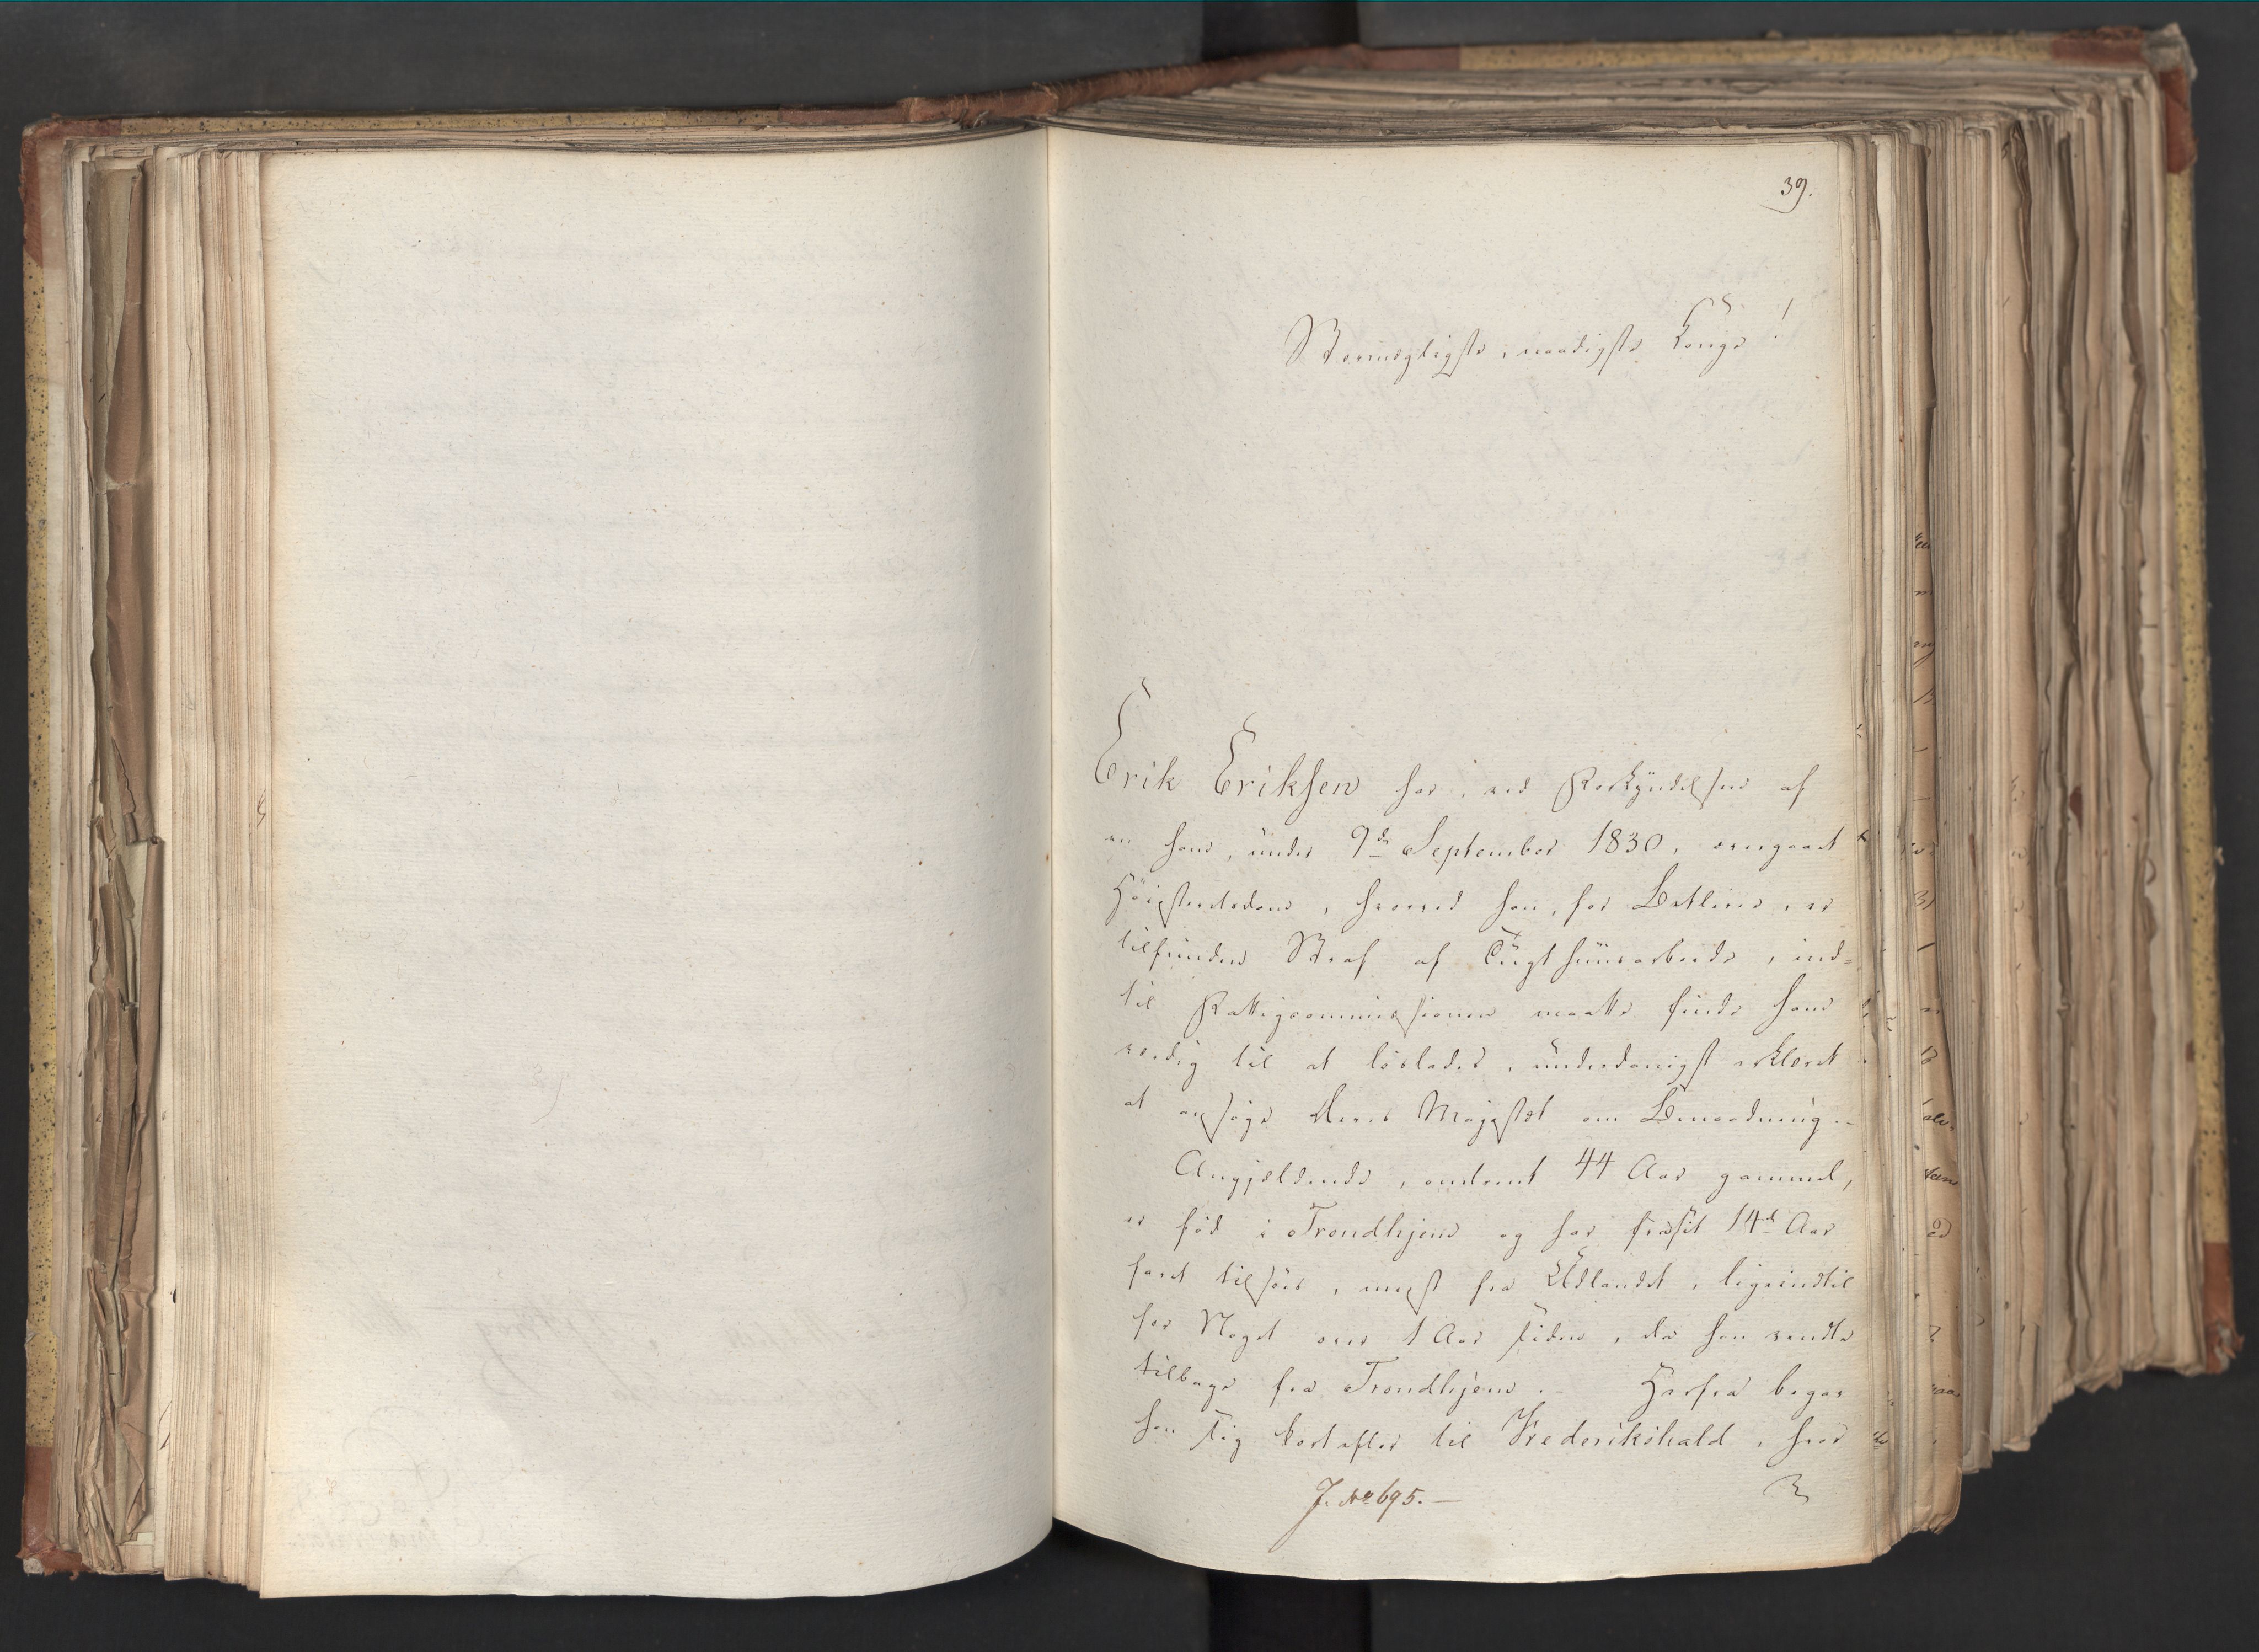 39.
Stormægtigste, naadigste Konge!
Erik Eriksen har, ved Forkyndelsen af
en ham, under 9de September 1830, overgaaet
Höiesteretsdom, hvorved han, for Betlerie, er
tilfunden Straf af Tugthuusarbeide, ind-
til Fattigcommissionen maatte finde ham
værdig til at löslades, underdanigst erklæret
at ansöge Deres Majestæt om Benaadning.-
Angjeldende, omtrent 44 Aar gammel,
er föd i Trondhjem og har fra sit 14de Aar
faret tilsöes, meest fra Udlandet, ligeindtil
for Noget over 1 Aar siden, da han vendte
tilbage fra Trondhjem.- Herfra begav
han sig kort efter til Frederikshald, hvor
J. No 695.-